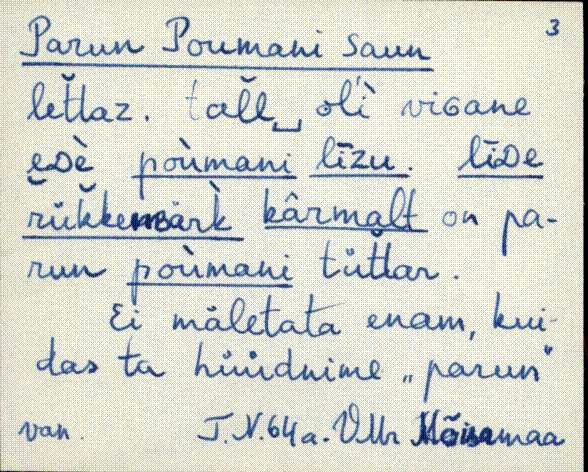 3
Parun Poumani saun
let̆laz. tăll‿ olì viɢane
eᴅè poùmani līzu. līᴅe
r̆ŭk̆kemär̀k kârmalt on pa-
run poùmani tŭt̆lar.
Ei mäletata enam, kui-
das ta hüüdnime „parun"
van. J.N. 64 a. VMr Mõisamaa